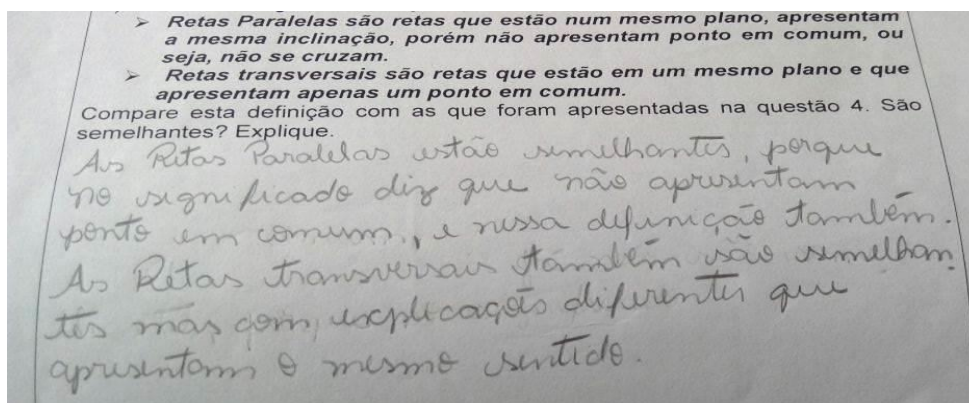 ➢ Retas Paralelas são retas que estão num mesmo plano, apresentam
a mesma inclinação, porém não apresentam ponto em comum, ou
seja, não se cruzam.
➢ Retas transversais são retas que estão em um mesmo plano e que
apresentam apenas um ponto em comum.
Compare esta definição com as que foram apresentadas na questão 4. São
semelhantes? Explique.
As Retas Paralelas estão semelhantes, porque
no significado diz que não apresentam
ponto em comum, e nessa definição também.
As Retas transversais também são semelhan
tes mas com explicações diferentes que
apresentam o mesmo sentido.